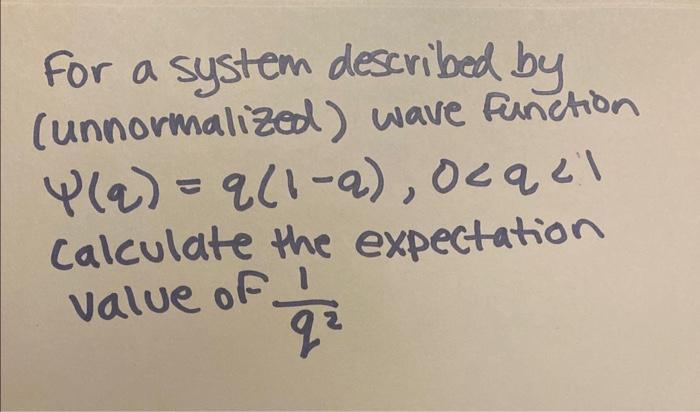 For a system described by
(unnormalized) wave function
Ψ(q) = q(1-q), 0<q<1
Calculate the expectation
value of 1/q²